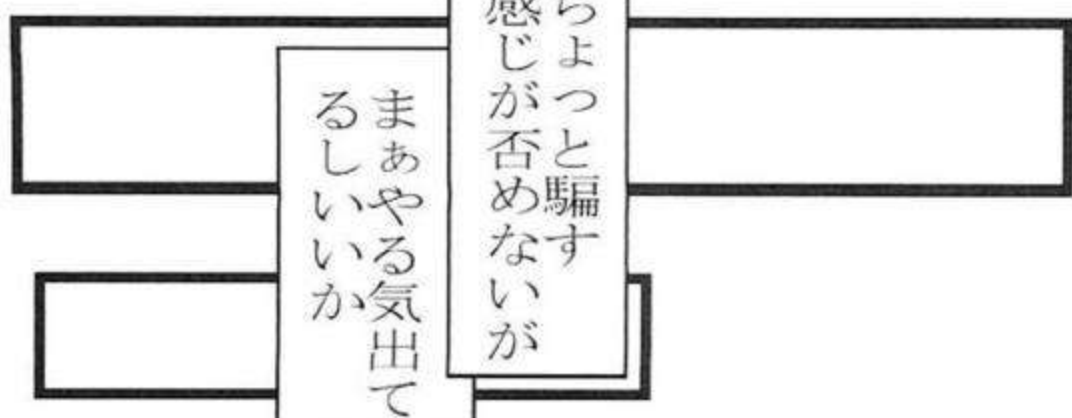 ちょっと騙す
感じが否めないが
まぁやる気出て
るしいいか